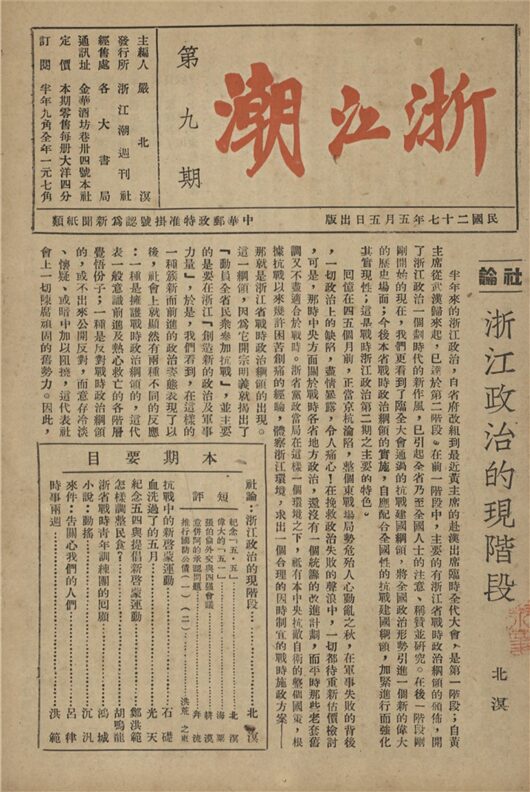 浙江潮
第九期
主編人 嚴北溟
發行所 浙江潮週刊社
經售處 各大書局
通訊址 金華酒坊巷卅四號本社
定價 本期零售每册大洋四分
訂閱 半年九角全年一元七角
民國二十七年五月五日出版
中華郵政特准掛號認爲新聞紙類
社論
浙江政治的現階段
北溟
半年來的浙江政治，自省府改組到最近黃主席的赴漢出席臨時全代大會，是第一階段；自黃
主席從武漢歸來起，已達於第二階段。在前一階段中，主要的有浙江省戰時政治綱領的頒佈，開
了浙江政治一個劃時代的新作風，已引起全省乃至全國人士的注意、稱贊並研究。在後一階段剛
剛開始的現在，我們更看到了臨全大會通過的抗戰建國綱領，將全國政治形勢引進一個新的偉大
的歷史場面；今後本省戰時政治綱領的實施，自應配合全國性的抗戰建國綱領，加緊進行而強化
其實現性；這是戰時浙江政治第二期之主要的特色。
回憶在四五個月前，正當京杭淪陷，整個東戰場局勢危殆人心動亂之秋，在軍事失敗的背後
，一切政治上的缺陷，盡情暴露，令人痛心！在挽救政治失敗的聲浪中，一切都待重新估價檢討
，可是，那時中央方面關於戰時各省地方政治，還沒有一個統籌的改進計劃，而平時那些老套舊
調又不盡適合於戰時。浙省黨政當局在這樣一個環境之下，祗有本中央抗敵自衛的整個國策，根
據抗戰以來幾許困苦創痛的經驗，體察浙江環境，求出一個合理的因時制宜的戰時施政方案——
那就是浙江省戰時政治綱領的出現。
這一綱領，因爲它開宗明義就揭出了
『動員全省民衆參加抗戰』，並主要
的是要在浙江『創造新的政治及軍事
力量』，於是，我們看到，在這樣的
一種簇新而前進的政治姿態表現了以
後，社會上就顯然有兩種不同的反應
：一種是擁護戰時政治綱領的，這代
表一般意識前進及熱心救亡的各階層
覺悟份子；一種是反對戰時政治綱領
的，或不出來公開反對，而意存冷淡
、懷疑、或暗中加以阻撓，這代表社
會上一切陳腐頑固的舊勢力。因此，
本期要目
社論：浙江政治的現階段……北溟
短評
紀念「五·五」……北溟
偉大的「五·五」……海粟
張伯倫外交與四強會議……耕漠
意併阿的承認問題……奔流
推行購防公債（一）（二）……洪範 之東
抗戰中的新啓蒙運動……石礎
血洗過了的五月……光天
紀念五四與提倡新啓蒙運動……鄭洪範
怎樣調整民食？……胡鳴龍
浙省戰時青年訓練團的回顧……鴻城
小說：動搖……沉汎
來件：告關心我們的人們……呂律
時事兩週……洪範